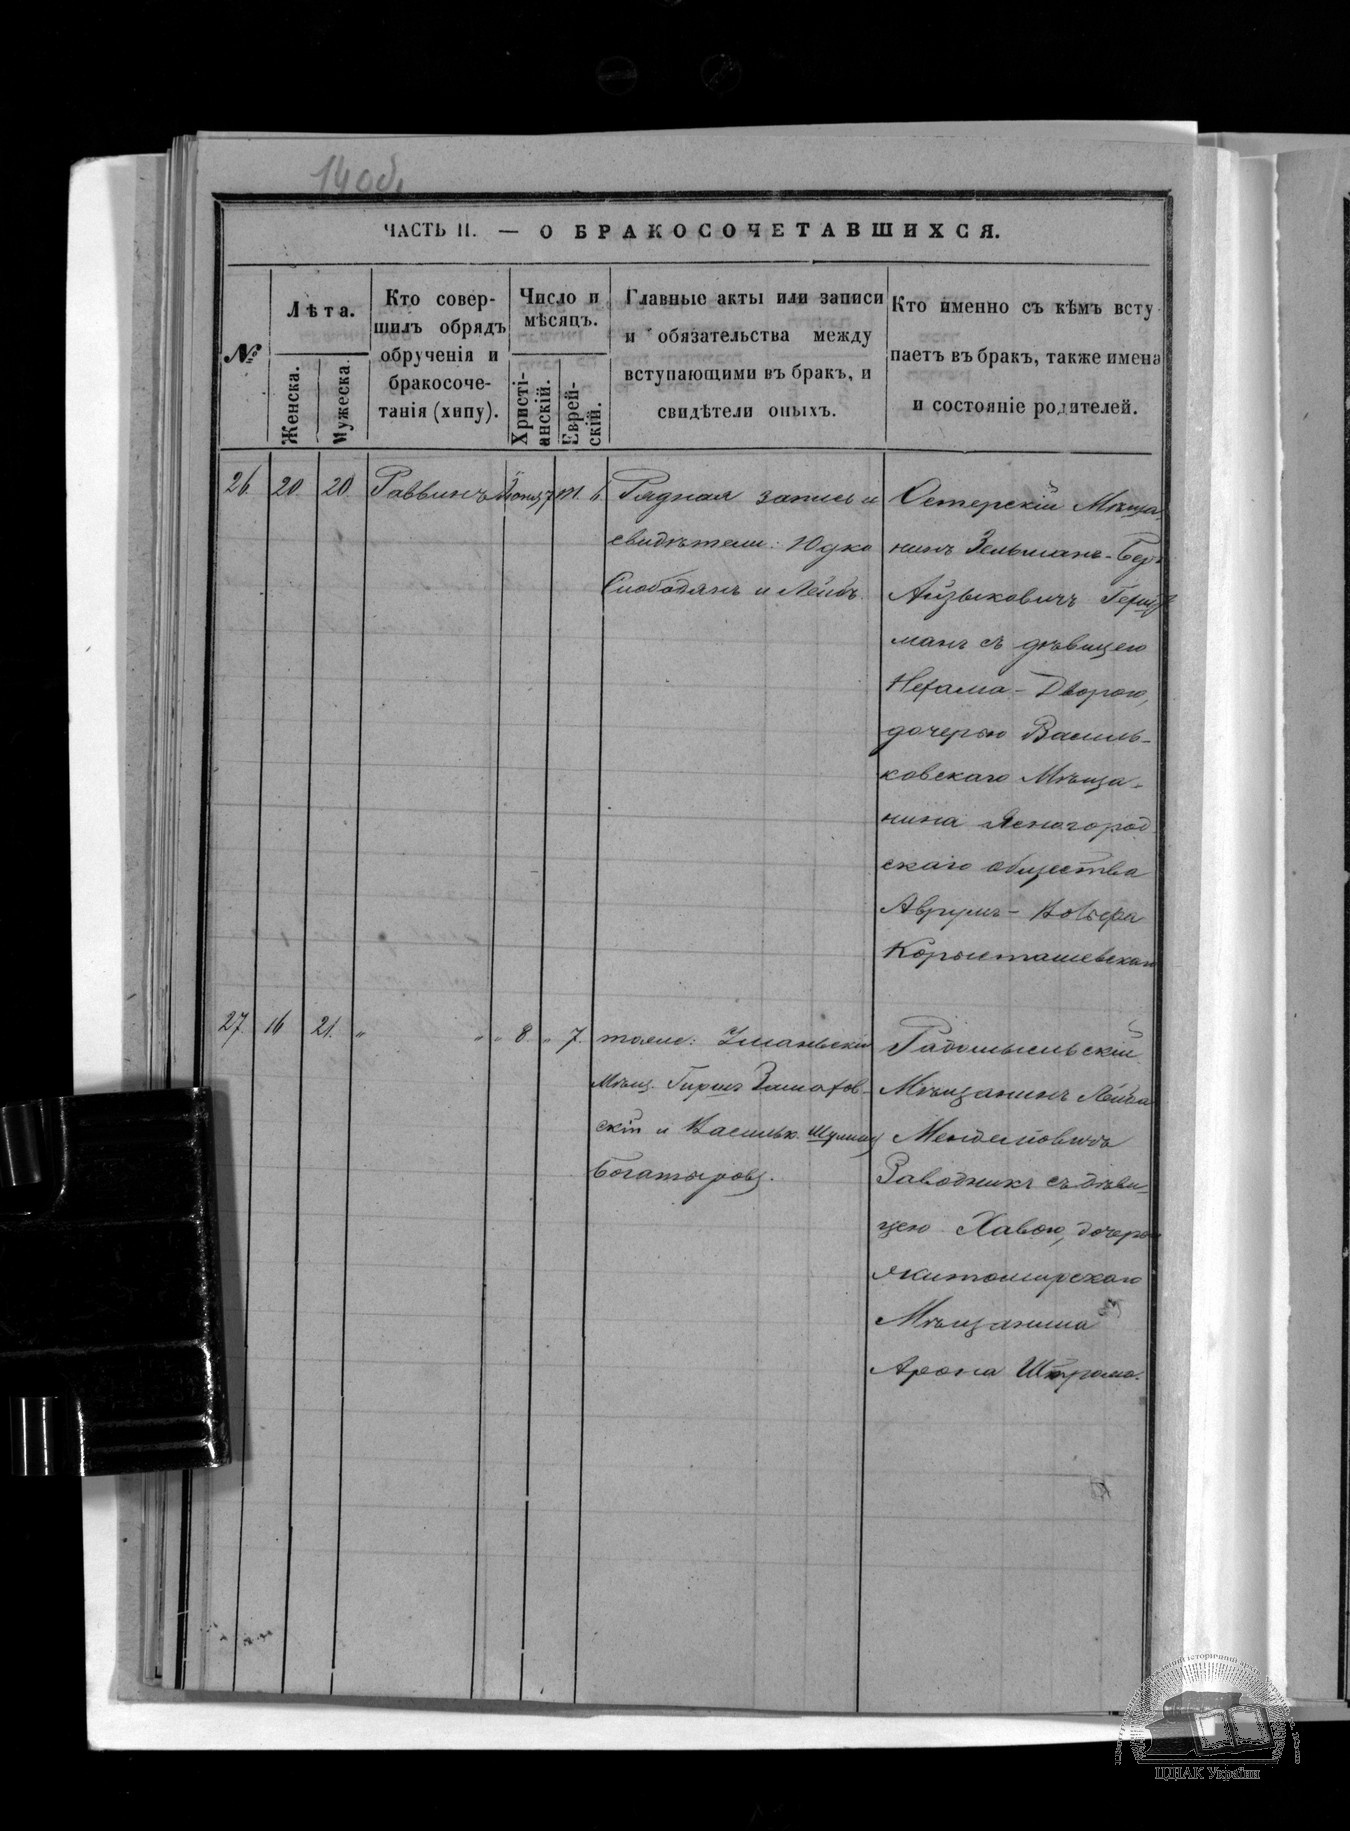 140б.
ЧАСТЬ II. — О БРАКОСОЧЕТАВШИХСЯ.
№
Лѣта.
Женска.
Мужеска.
Кто совер-
шилъ обрядъ
обрученія и
бракосоче-
танія (хипу).
Число и
мѣсяцъ.
Христі-
анскій.
Еврей-
скій.
Главные акты или записи
и обязательства между
вступающими въ бракъ, и
свидѣтели оныхъ.
Кто именно съ кѣмъ всту
паетъ въ бракъ, также имена
и состояніе родителей.
26. 20. 20. Раввинъ 6
Рядная запись и
свидѣтели: Юдко
Слободянъ и Лейбъ
Остерскій Мѣща-
нинъ Зельманъ-Бер
Айзыковичъ
манъ съ дѣвицею
Нехама-Дворою,
дочерью Василь-
ковскаго Мѣща-
нина Ясногород
скаго общества
Аврумъ-
27. 16 21. " " " 8 " 7.
тоже: Уманьскій
Мѣщ. Гиршъ
скій и Васильк. Шулим
Богатыровъ.
Радомысльскій
Мѣщанинъ Лейба
Менделовичъ
Заводникъ съ дѣви-
цею Хавою, дочерью
Житомирскаго
Мѣщанина
Арона Штрома.
ЦДІАК України